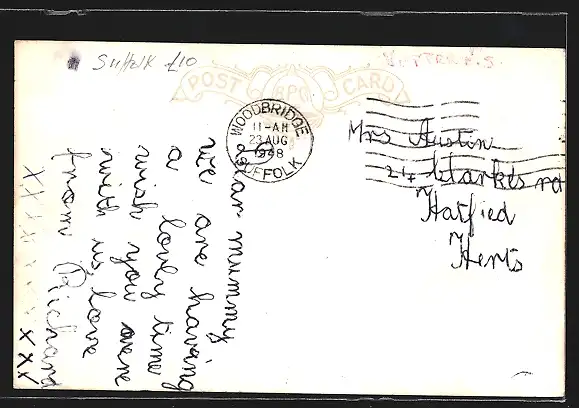 Suffolk £10
POST RPC CARD
WOODBRIDGE
11-AM
23 AUG
1948
SUFFOLK
Mrs Austin
24 Clarkes rd
Hatfied
Herts
dear mummy
we are having
a lovely time
wish you were
with us, love
from Richard